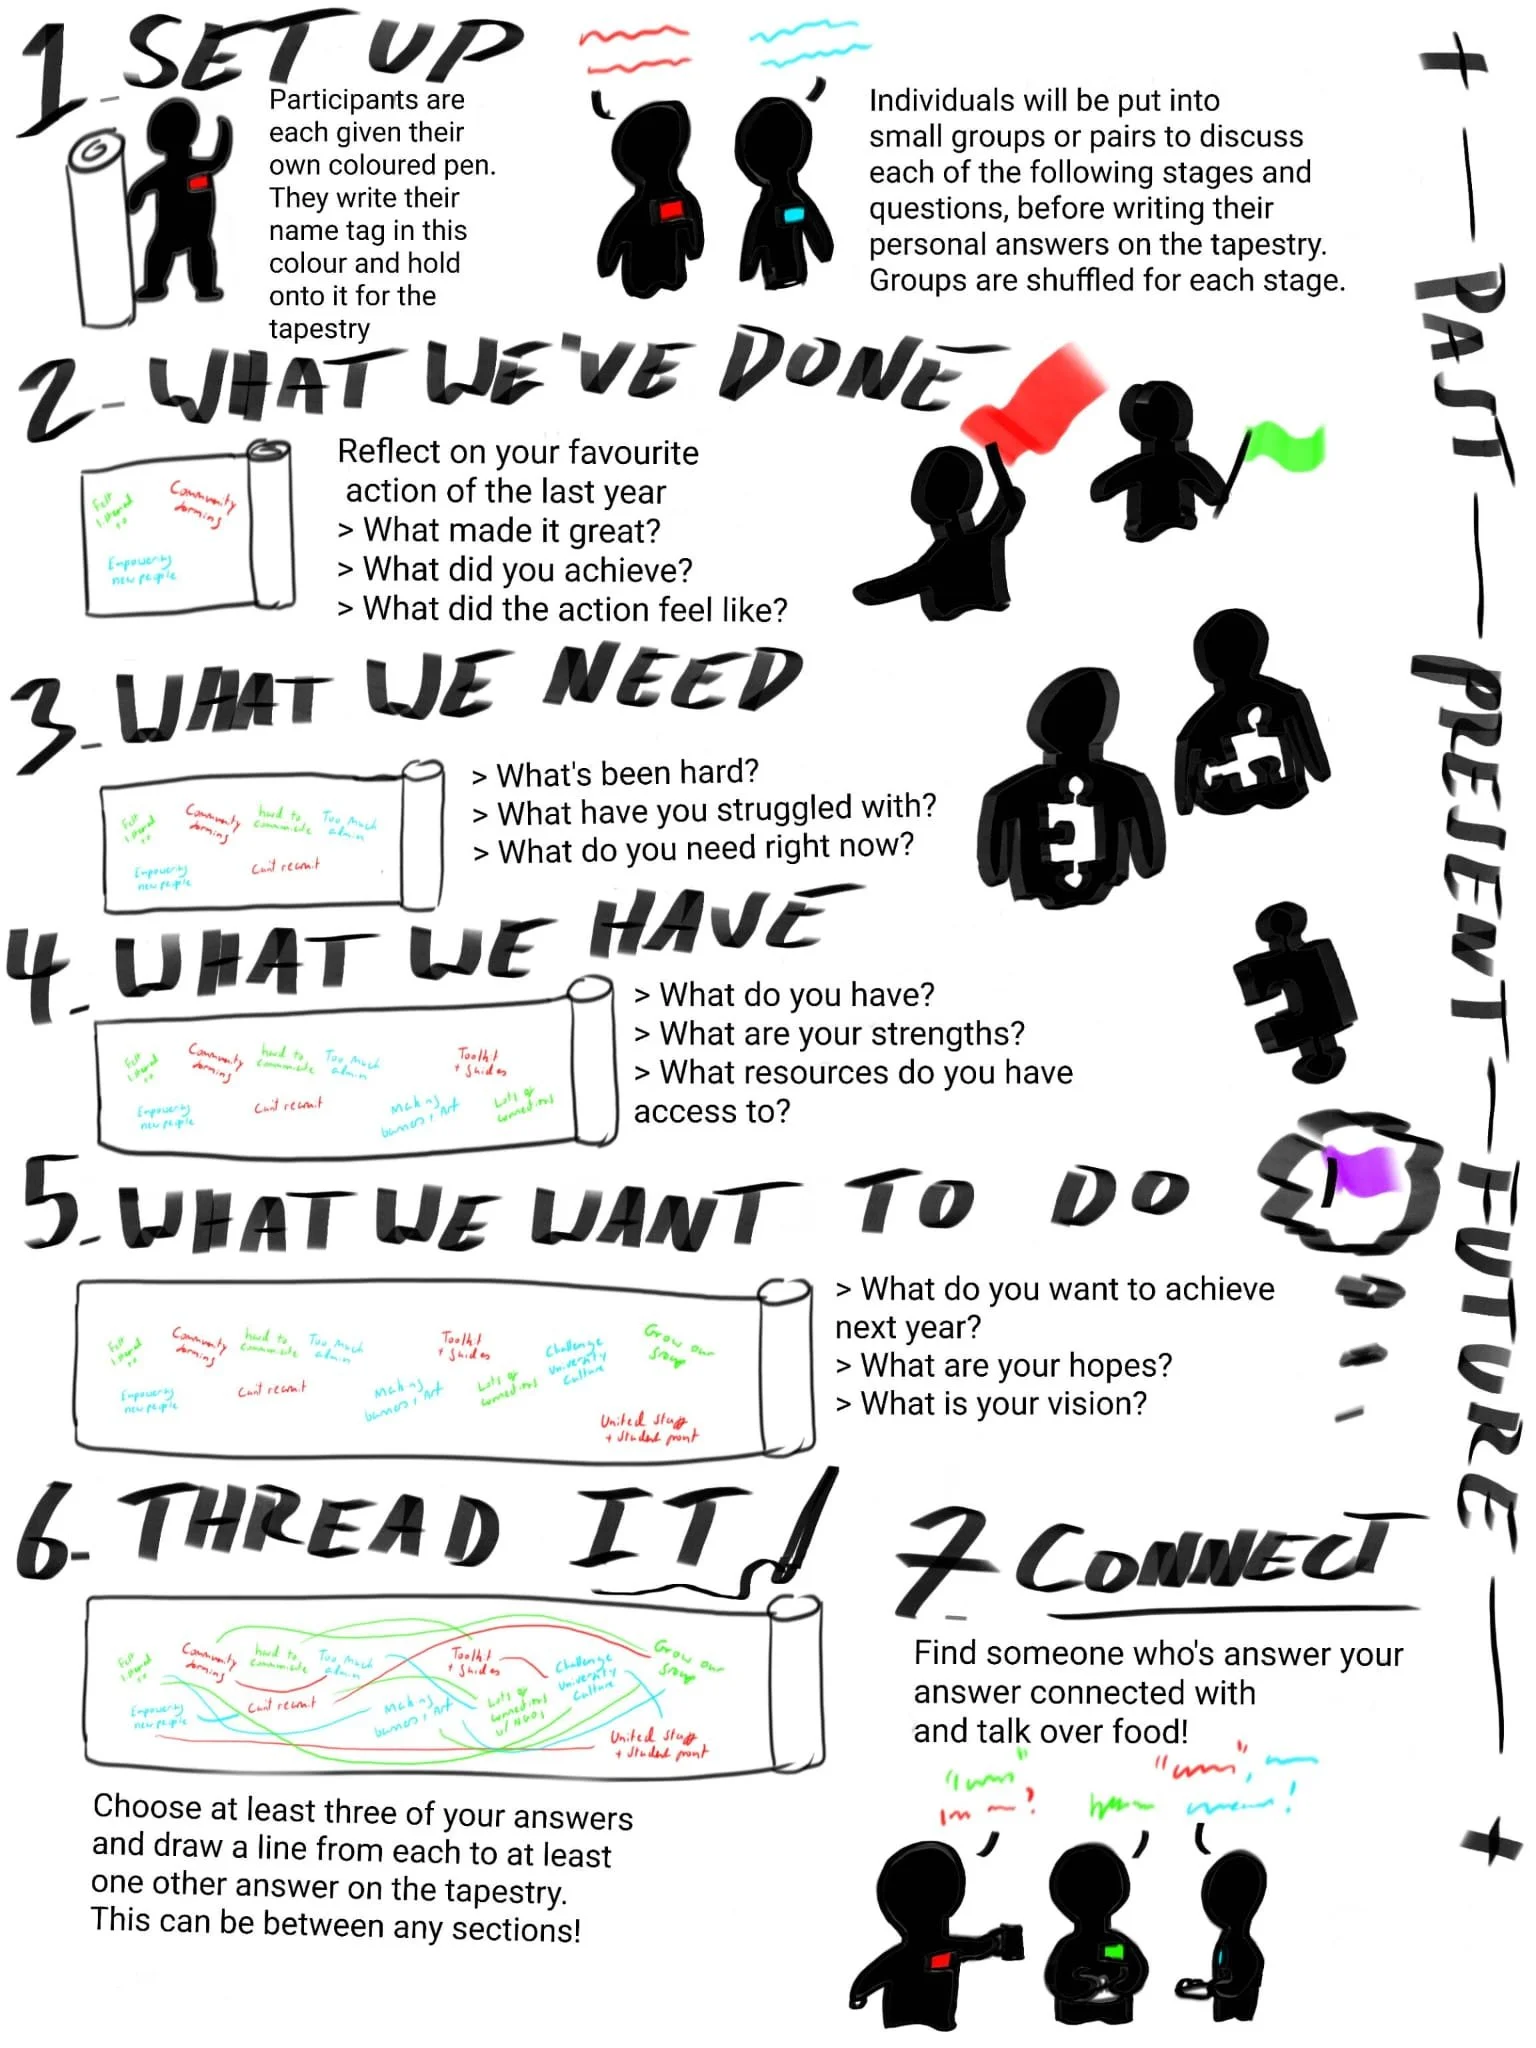 1_ SET UP
Participants are
each given their
own coloured pen.
They write their
name tag in this
colour and hold
onto it for the
tapestry
Individuals will be put into
small groups or pairs to discuss
each of the following stages and
questions, before writing their
personal answers on the tapestry.
Groups are shuffled for each stage.
2_ WHAT WE'VE DONE
Community
Empowering
new people
Reflect on your favourite
action of the last year
> What made it great?
> What did you achieve?
> What did the action feel like?
3_ WHAT WE NEED
Community
hard to
Too Much
admin
Empowering
new people
Can't recruit
> What's been hard?
> What have you struggled with?
> What do you need right now?
4_ WHAT WE HAVE
Community
hard to
Too Much
admin
Toolkit
+ Guides
Empowering
new people
Can't recruit
Making
banners + Art
Lots of
connections
> What do you have?
> What are your strengths?
> What resources do you have
access to?
5_ WHAT WE WANT TO DO
Community
hard to
Too Much
admin
Toolkit
+ Guides
Challenge
University
Culture
Grow our
group
Empowering
new people
Can't recruit
Making
banners + Art
Lots of
connections
United Staff
+ Student front
> What do you want to achieve
next year?
> What are your hopes?
> What is your vision?
6_ THREAD IT
Community
hard to
Too Much
admin
Toolkit
+ Guides
Challenge
University
Culture
Grow our
group
Empowering
new people
Can't recruit
Making
banners + Art
Lots of
connections
w/ NGOs
United Staff
+ Student front
Choose at least three of your answers
and draw a line from each to at least
one other answer on the tapestry.
This can be between any sections!
7_ CONNECT
Find someone who's answer your
answer connected with
and talk over food!
PAST
PRESENT
FUTURE